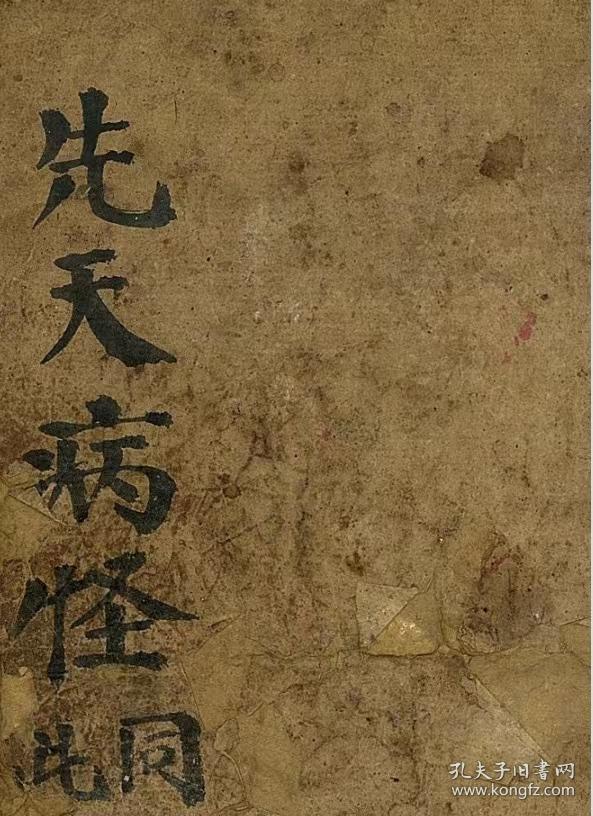 先天病怪
同此
孔夫子旧書网
www.kongfz.com